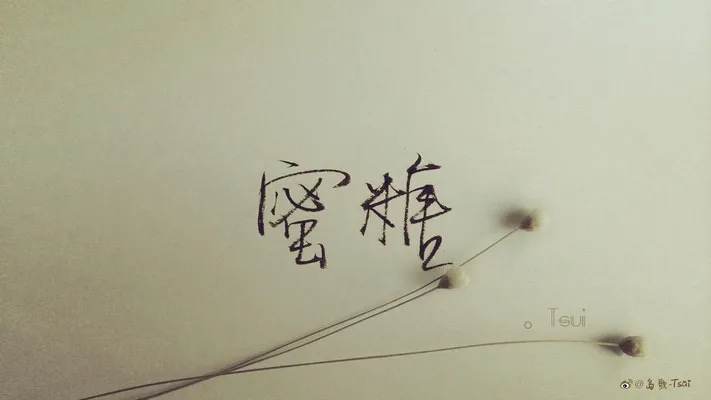 蜜糖
。Tsui
@岛歌-Tsai